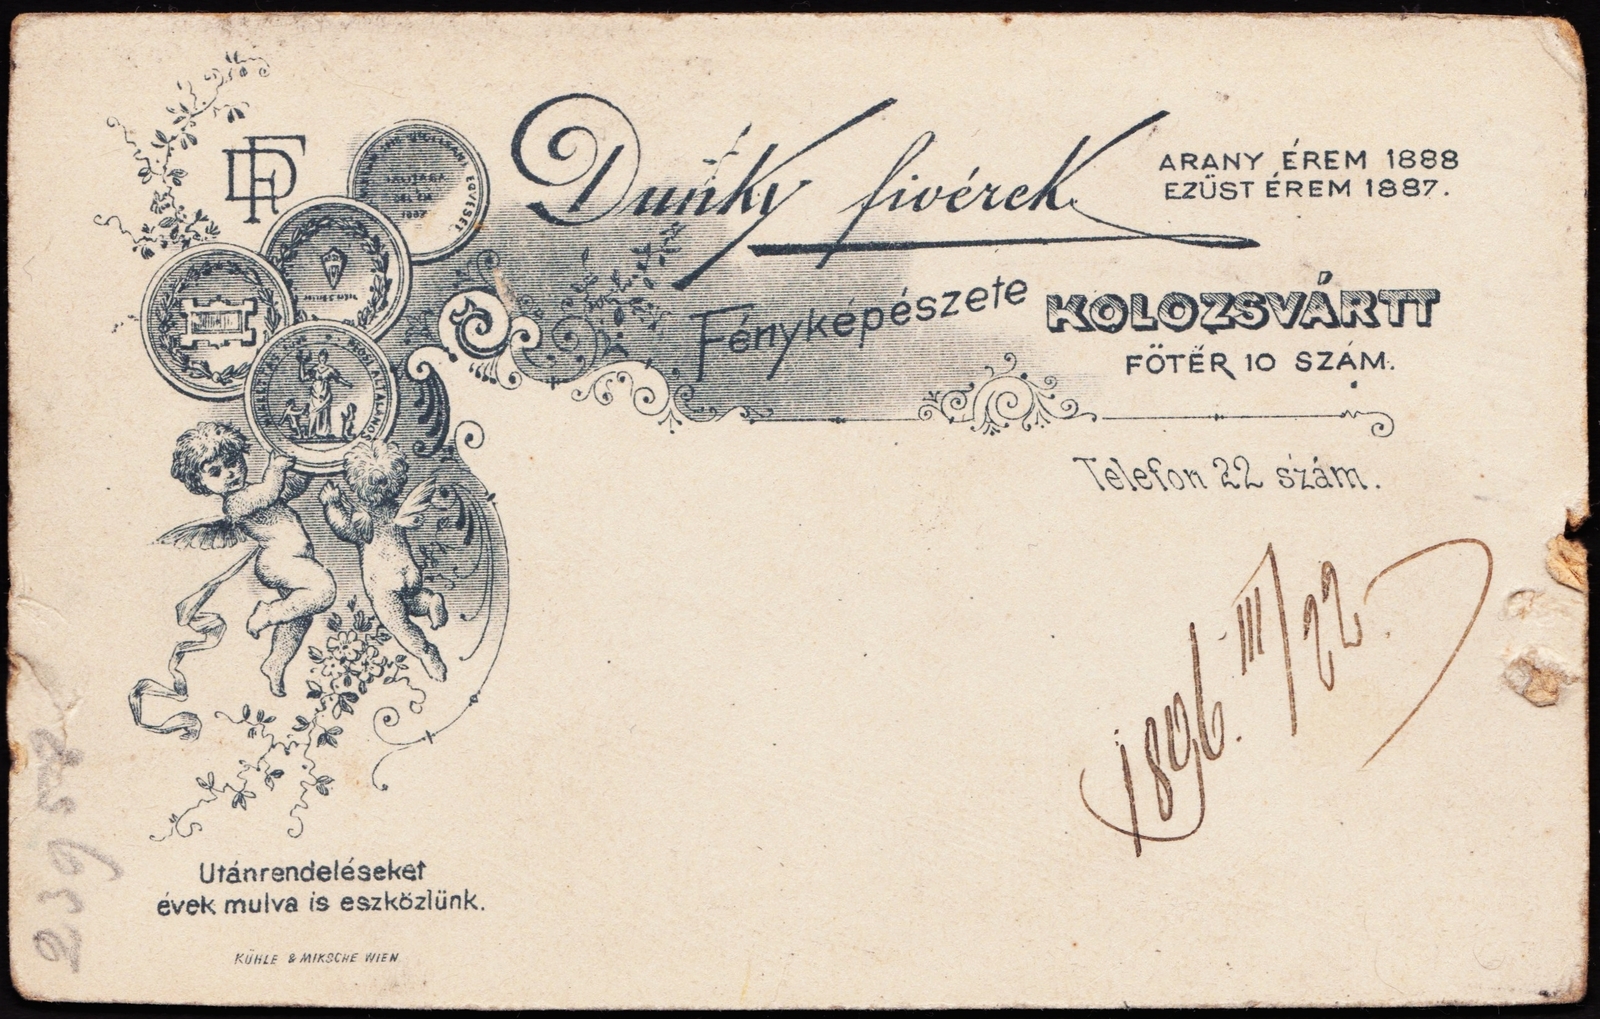 DF
Dunky fivérek
ARANY ÉREM 1888
EZÜST ÉREM 1887.
Fényképészete
KOLOZSVÁRTT
FÖTÉR 10 SZÁM.
Telefon 22 szám.
1896. III/22.
Utánrendeléseket
évek mulva is eszközlünk.
KÜHLE & MIKSCHE WIEN